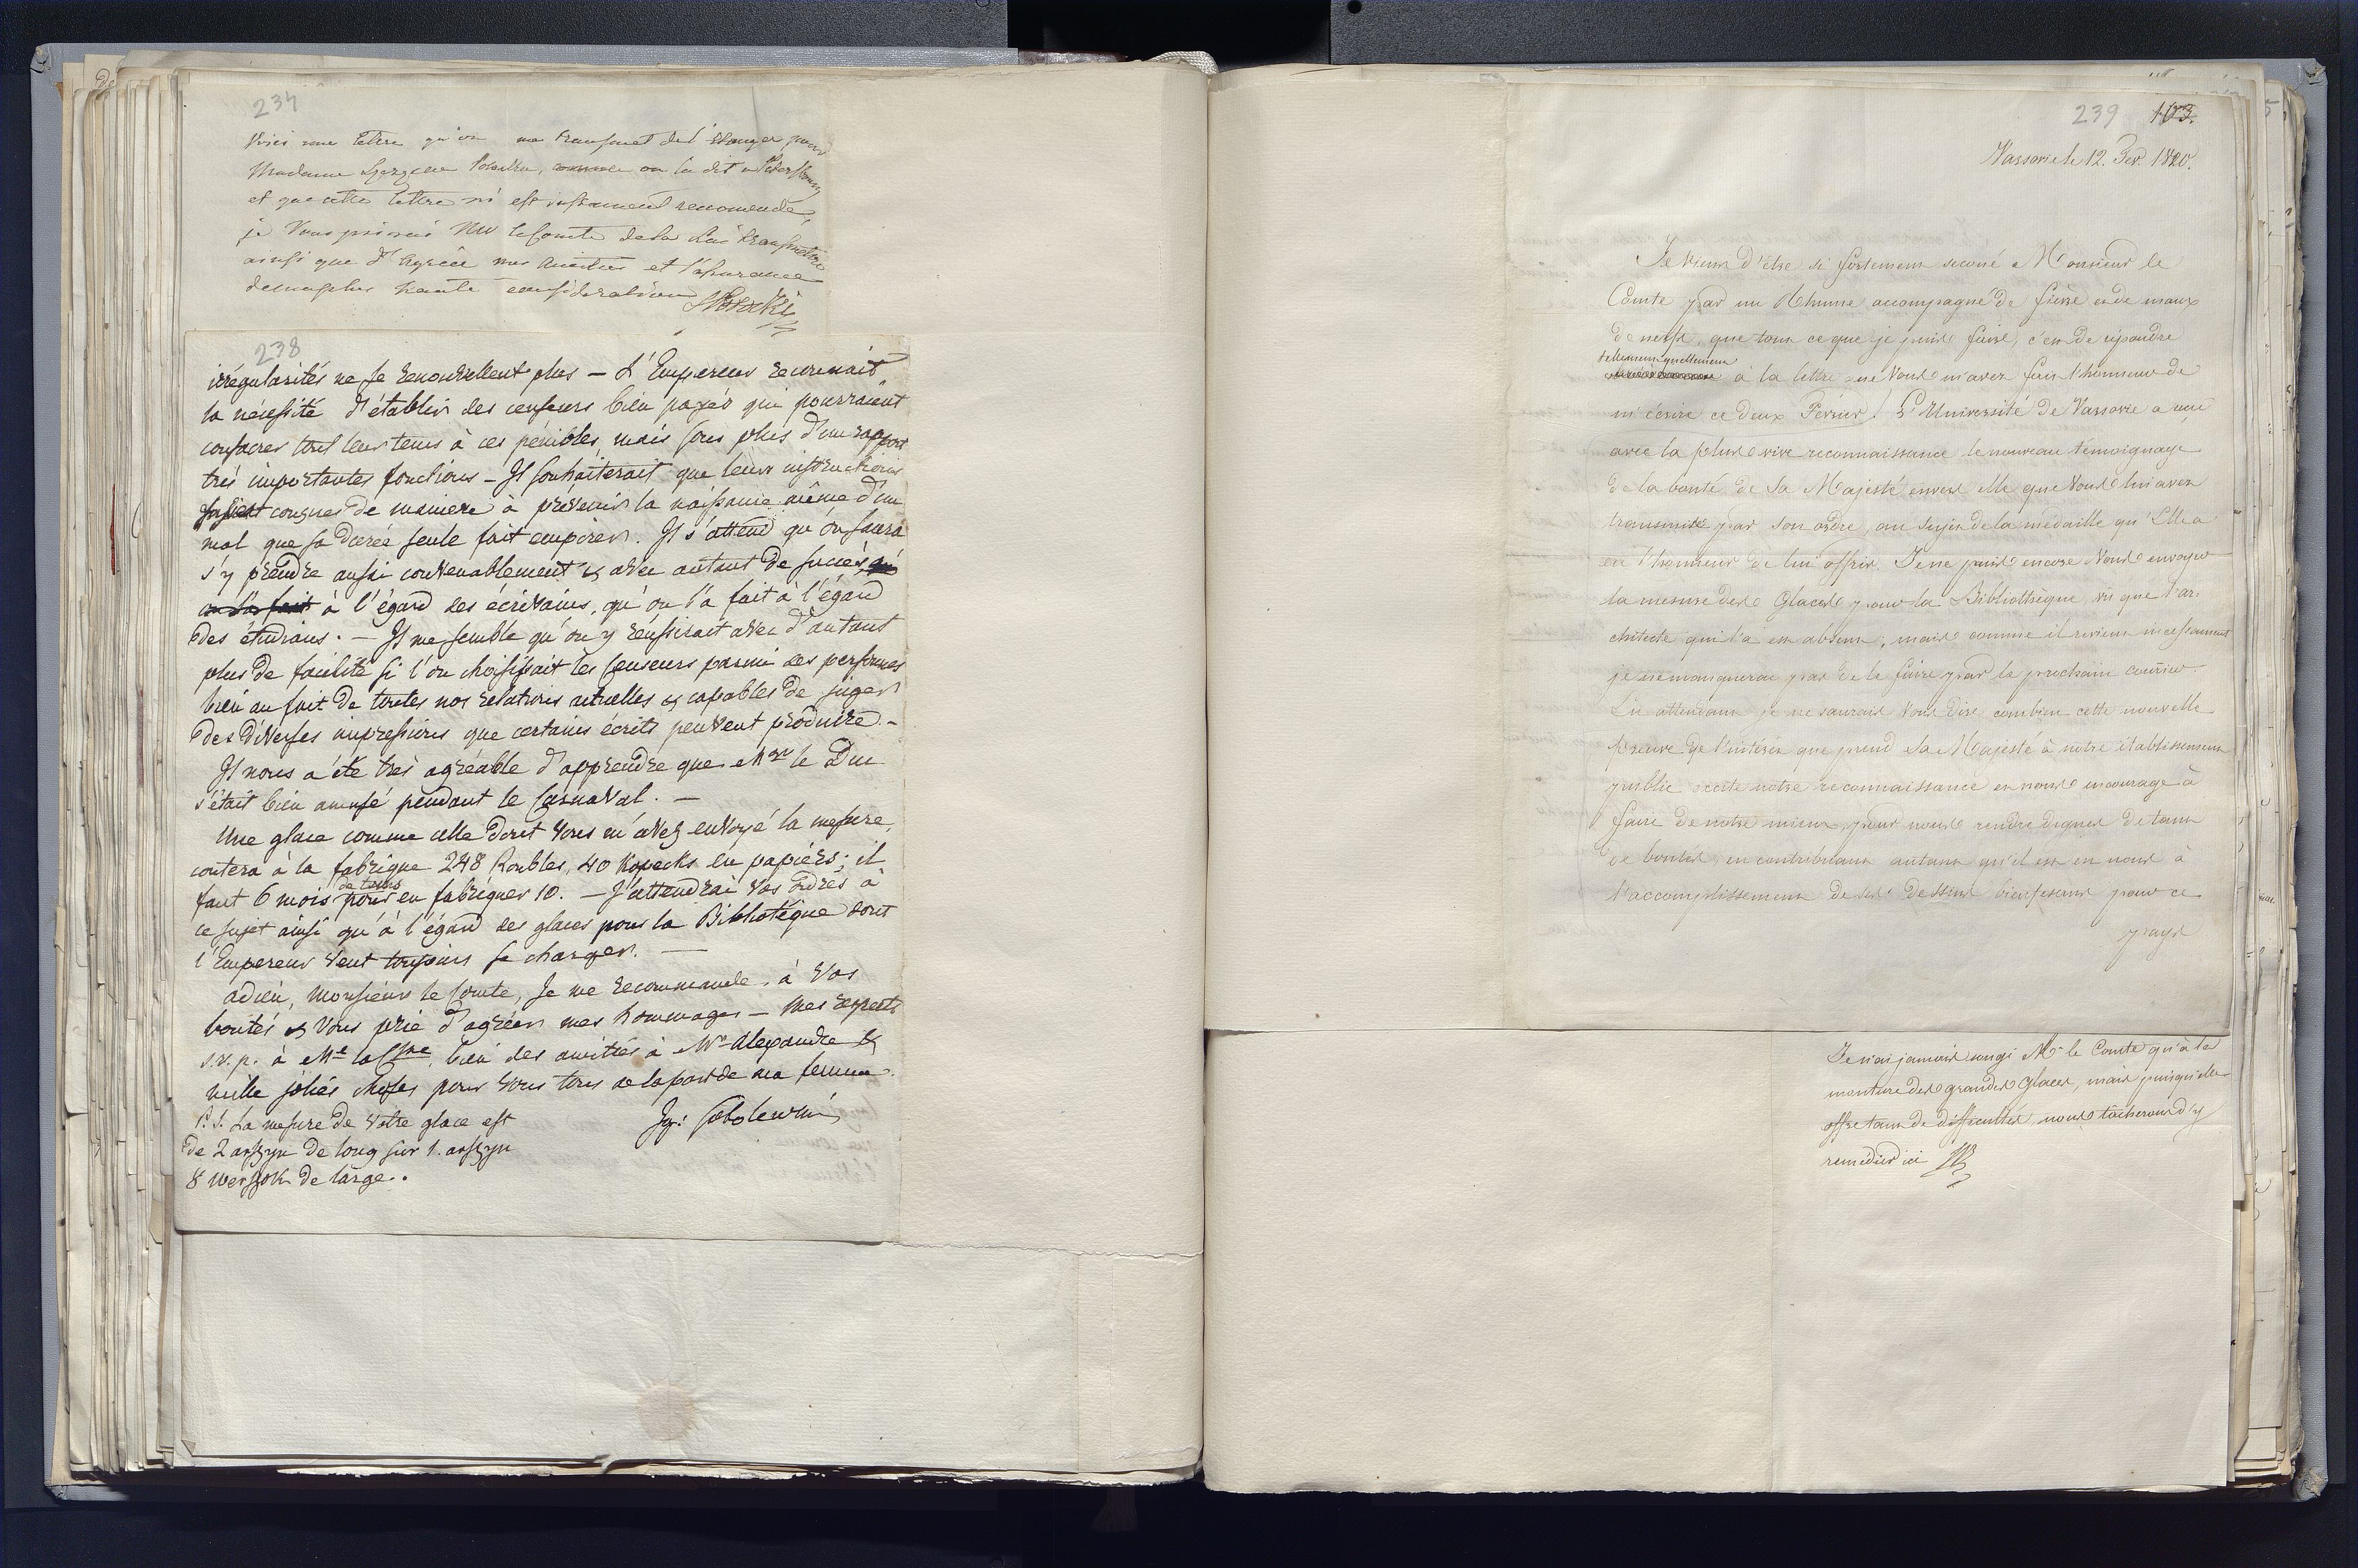 237
Voici une lettre qu'on me transmet de l'étranger pour
Madame
et que cette lettre m'est instament recomendée,
je Vous prierai Mr le Comte de la Lui transmettre
ainsi que d'Agréer mes Amitiés et l'assurance
de ma plus haute consideration
238
irrégularités ne se renouvellent plus — L'Empereur reconnait
la nécessité d'établir des censeurs bien payés qui pourraient
consacrer tout leur tems à ces pénibles, mais sous plus d'un rapport
très importantes fonctions — Il souhaiterait que leurs instructions
fussent conçues de maniere à prévenir la naissance même d'un
mal que sa durée seule fait empirer. Il s'attend qu'on saura
s'y prendre aussi convenablement & avec autant de succès qu'
on l'a fait à l'égard des écrivains, qu'on l'a fait à l'égard
des étudians. — Il me semble qu'on y réussirait avec d'autant
plus de facilité si l'on choisissait les Censeurs parmi des personnes
bien au fait de toutes nos relations actuelles & capables de juger
des diverses impressions que certains écrits peuvent produire. -
Il nous a été très agréable d'apprendre que Mgr le Duc
s'était bien amusé pendant le Carnaval. —
Une glace comme celle dont vous m'avez envoyé la mesure,
coutera à la fabrique 248 Roubles, 40 Kopecks en papiers; il
faut 6 mois de tems pour en fabriquer 10. — J'attendrai vos ordres à
ce sujet ainsi qu'à l'égard des glaces pour la Bibliotéque dont
l'Empereur veut toujours se charger. —
adieu, Monsieur le Comte, Je me recommande à vos
bontés & vous prie d'agréer mes hommages — mes respects
s.v.p. à Me la Csse, bien des amitiés à Mr Alexandre &
mille jolies choses pour vous tous de la part de ma femme.
Ig: Sobolewski
P.S. La mesure de votre glace est
de 2 arszyn de long sur 1. arszyn
8 werszok de large.
239 103.
Varsovie le 12. Fev. 1820.
Je viens d'etre si fortement secoué Monsieur le
Comte par un Rhume accompagné de fievre et de maux
de nerfs, que tout ce que je puis faire, c'est de répondre
à la lettre que Vous m'avez fait l'honneur de
m'écrire ce deux Fevrier. L'Université de Varsovie a reçu
avec la plus vive reconnaissance le nouveau témoignage
de la bonté de Sa Majesté envers elle que Vous lui avez
transmis par son ordre, au sujet de la médaille qu'Elle a
eu l'honneur de lui offrir. Je ne puis encore Vous envoyer
la mesure des Glaces pour la Bibliothèque, vu que l'ar-
chitecte qui l'a est absent; mais comme il revient incessament
je ne manquerai pas de le faire par le prochain courier.
En attendant je ne saurais Vous dire combien cette nouvelle
preuve de l'intérêt que prend Sa Majesté à notre établissement
public excite notre reconnaissance et nous encourage à
faire de notre mieux, pour nous rendre dignes de tant
de bontés, en contribuant autant qu'il est en nous à
l'accomplissement de ses desseins bienfesants pour ce
pays
Je n'ai jamais songé Mr le Comte qu'à la
monture des grandes Glaces, mais puisqu'elle
offre tant de difficultés, nous tâcherons d'y
remédier ici